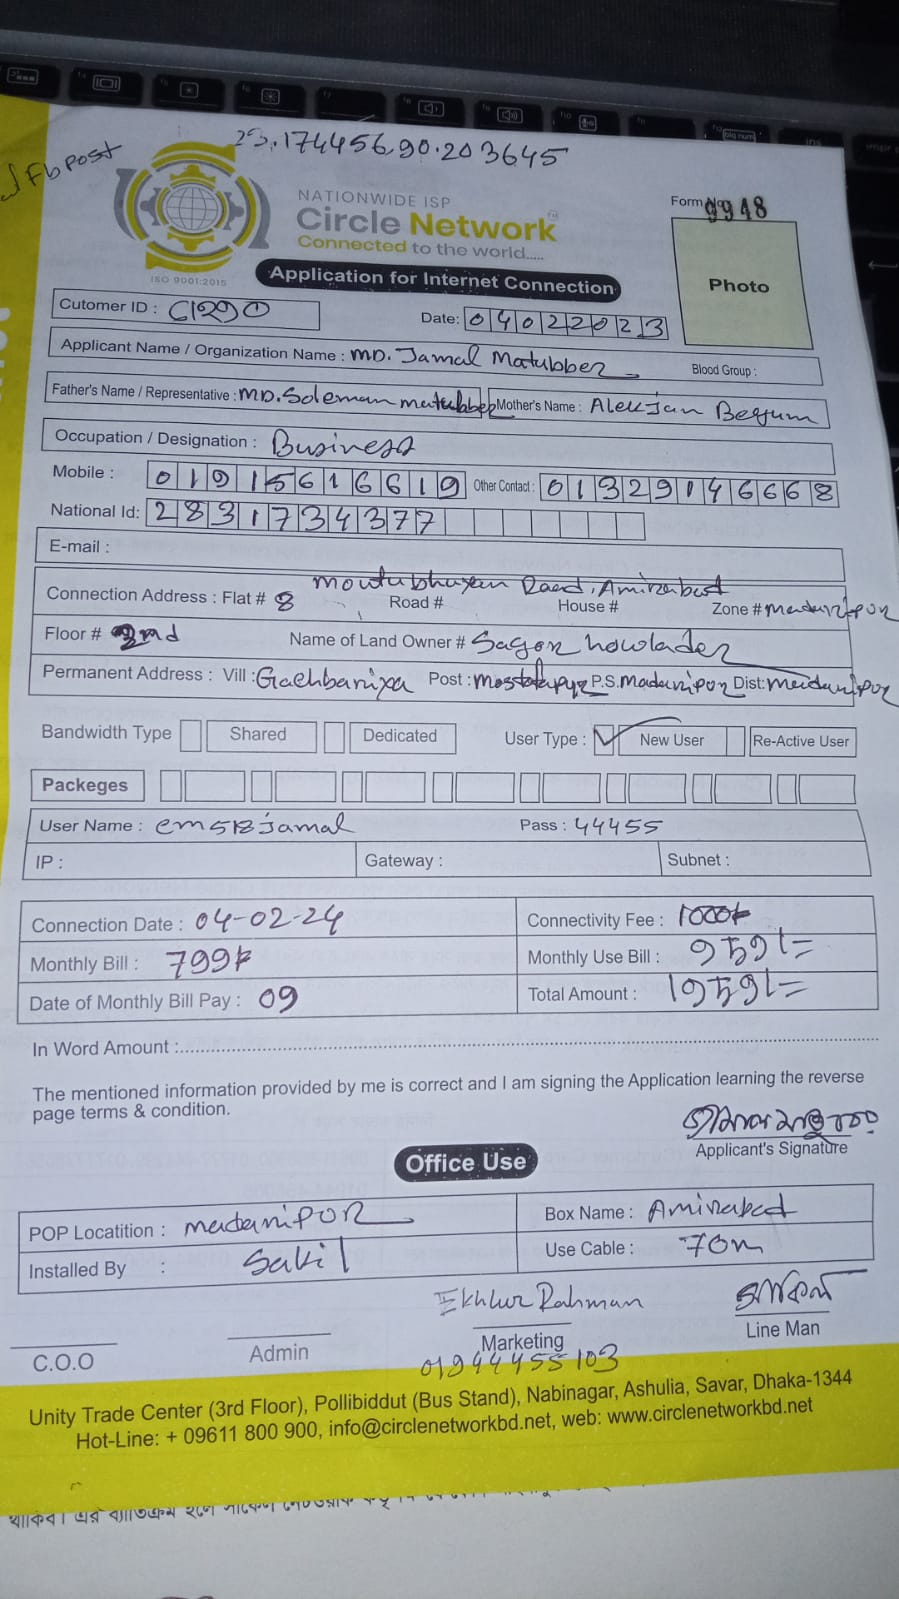 23.174456,90.203645
Fb post
NATIONWIDE ISP
Circle Network
Connected to the world.....
ISO 9001:2015
Form 9948
Photo
Application for Internet Connection
Cutomer ID :
Date: 04022023
Applicant Name / Organization Name : MD. Jamal Matubber
Blood Group :
Father's Name / Representative : MD. Soleman matubber Mother's Name : Alekjan Begum
Occupation / Designation : Business
Mobile : 01915616619 Other Contact : 01329146668
National Id: 2831734377
E-mail :
Connection Address : Flat # 8 Road # House # Zone # madaripor
Floor # 2nd Name of Land Owner # Sagor howlader
Permanent Address : Vill : Gachbariya Post : mostofapyr P.S. madaripor Dist: madaripor
Bandwidth Type Shared Dedicated User Type : New User Re-Active User
Packeges
User Name : em518jamal Pass : 44455
IP : Gateway : Subnet :
Connection Date : 04-02-24 Connectivity Fee : 1000৳
Monthly Bill : 799৳ Monthly Use Bill :
Date of Monthly Bill Pay : 09 Total Amount :
In Word Amount :
The mentioned information provided by me is correct and I am signing the Application learning the reverse
page terms & condition.
Applicant's Signature
Office Use
POP Locatition : madaripor Box Name : Amirabad
Installed By : Sakil Use Cable : 70m
Ekhlur Rahman
C.O.O Admin Marketing Line Man
01944455103
Unity Trade Center (3rd Floor), Pollibiddut (Bus Stand), Nabinagar, Ashulia, Savar, Dhaka-1344
Hot-Line: + 09611 800 900, info@circlenetworkbd.net, web: www.circlenetworkbd.net